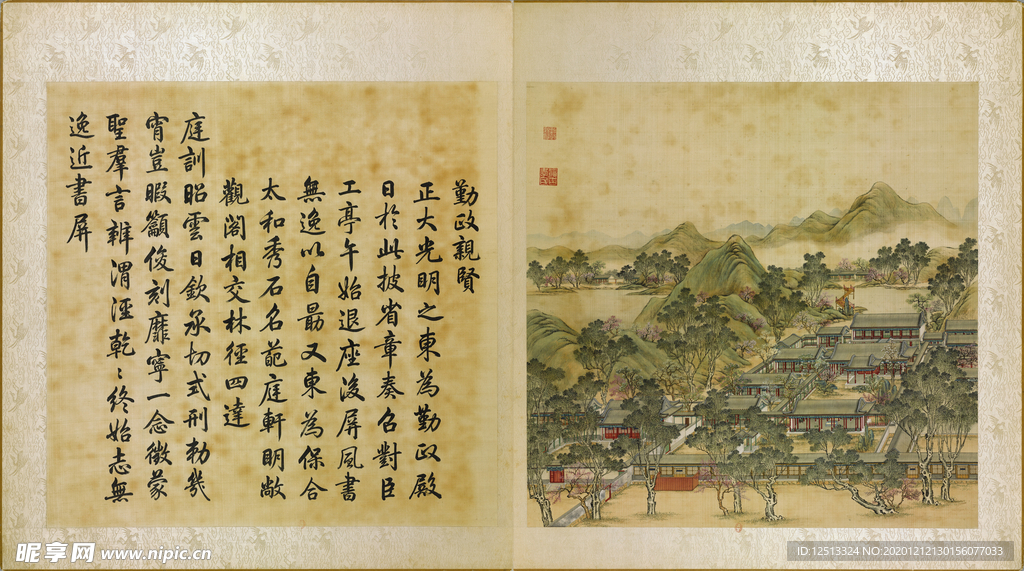 勤政親賢
正大光明之東為勤政殿
日於此披省章奏召對臣
工亭午始退座後屏風書
無逸以自勗又東為保合
太和秀石名葩庭軒明敞
觀閣相交林徑四達
庭訓昭雲日欽承切式刑勅幾
宵豈暇籲俊刻靡寧一念徵蒙
聖羣言辨渭涇乾〻終始志無
逸近書屏
昵享网 www.nipic.cn
ID:12513324 NO:20201212130156077033